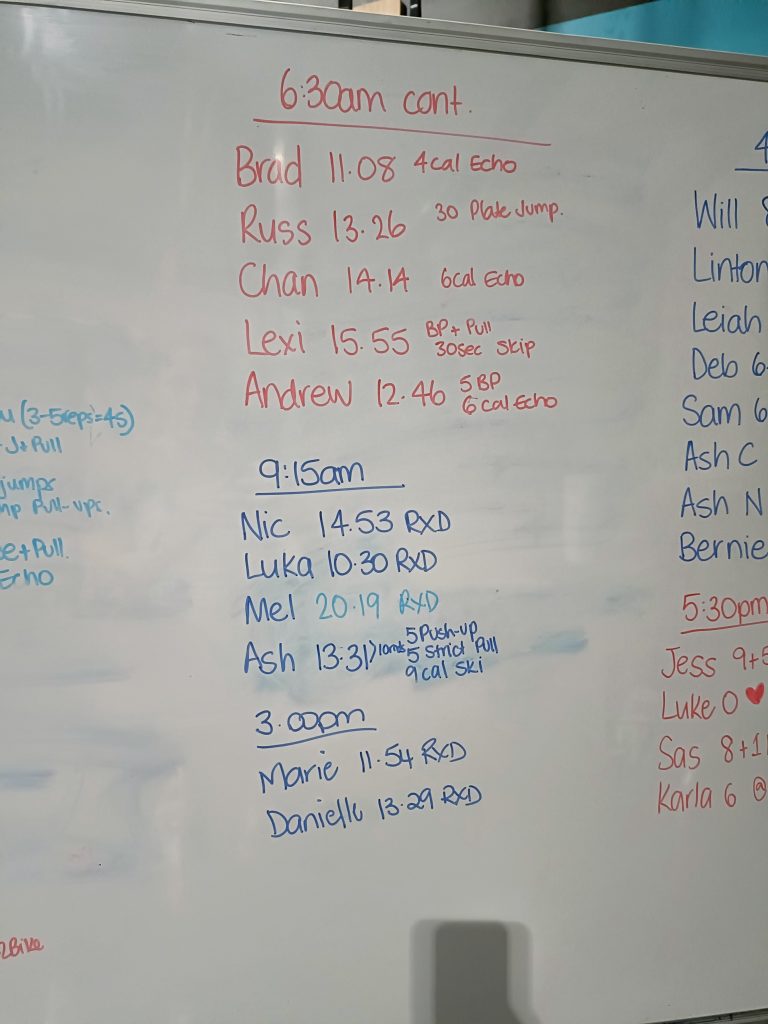 6:30am cont.
Brad 11.08 4cal Echo
Russ 13.26 30 Plate Jump.
Chan 14.14 6cal Echo
Lexi 15.55 BP + Pull
30sec Skip
Andrew 12.46 5 BP
6 cal Echo
9:15am
Nic 14.53 RXD
Luka 10.30 RXD
Mel 20.19 RXD
Ash 13.31 5 Push-up
5 Strict Pull
9cal Ski
3.00pm
Marie 11.54 RXD
Danielle 13.29 RXD
(3-5reps=45)
J+Pull
jumps
Pull-ups.
+Pull.
Bike
4
Will 8
Linton
Leiah
Deb 6
Sam 6
Ash C
Ash N
Bernie
5:30pm
Jess 9+5
Luke 0 ♥
Sas 8+11
Karla 6 @